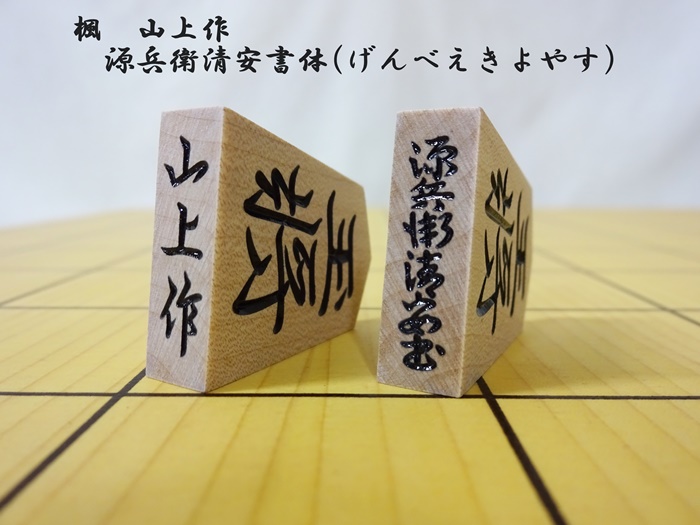 楓　山上作
源兵衛清安書体(げんべえきよやす)
山上作
王将
源兵衛清安書
玉将